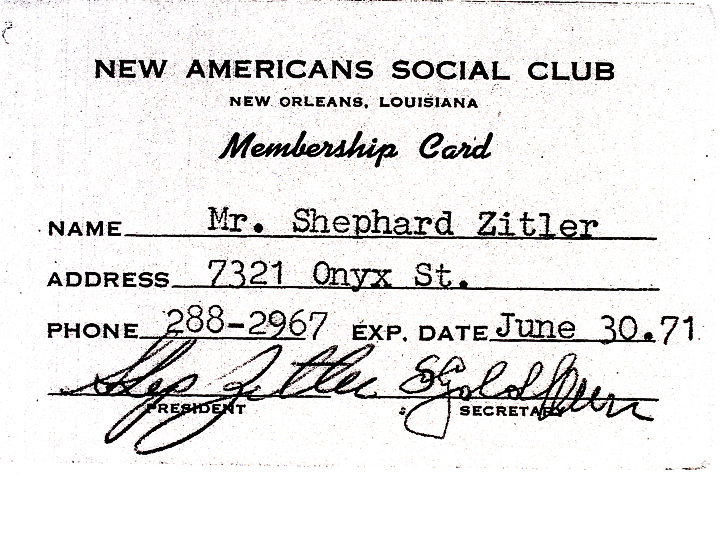 NEW AMERICANS SOCIAL CLUB
NEW ORLEANS, LOUISIANA
Membership Card
NAME Mr. Shephard Zitler
ADDRESS 7321 Onyx St.
PHONE 288-2967 EXP. DATE June 30.71
Shep Zitler
PRESIDENT SECRETARY